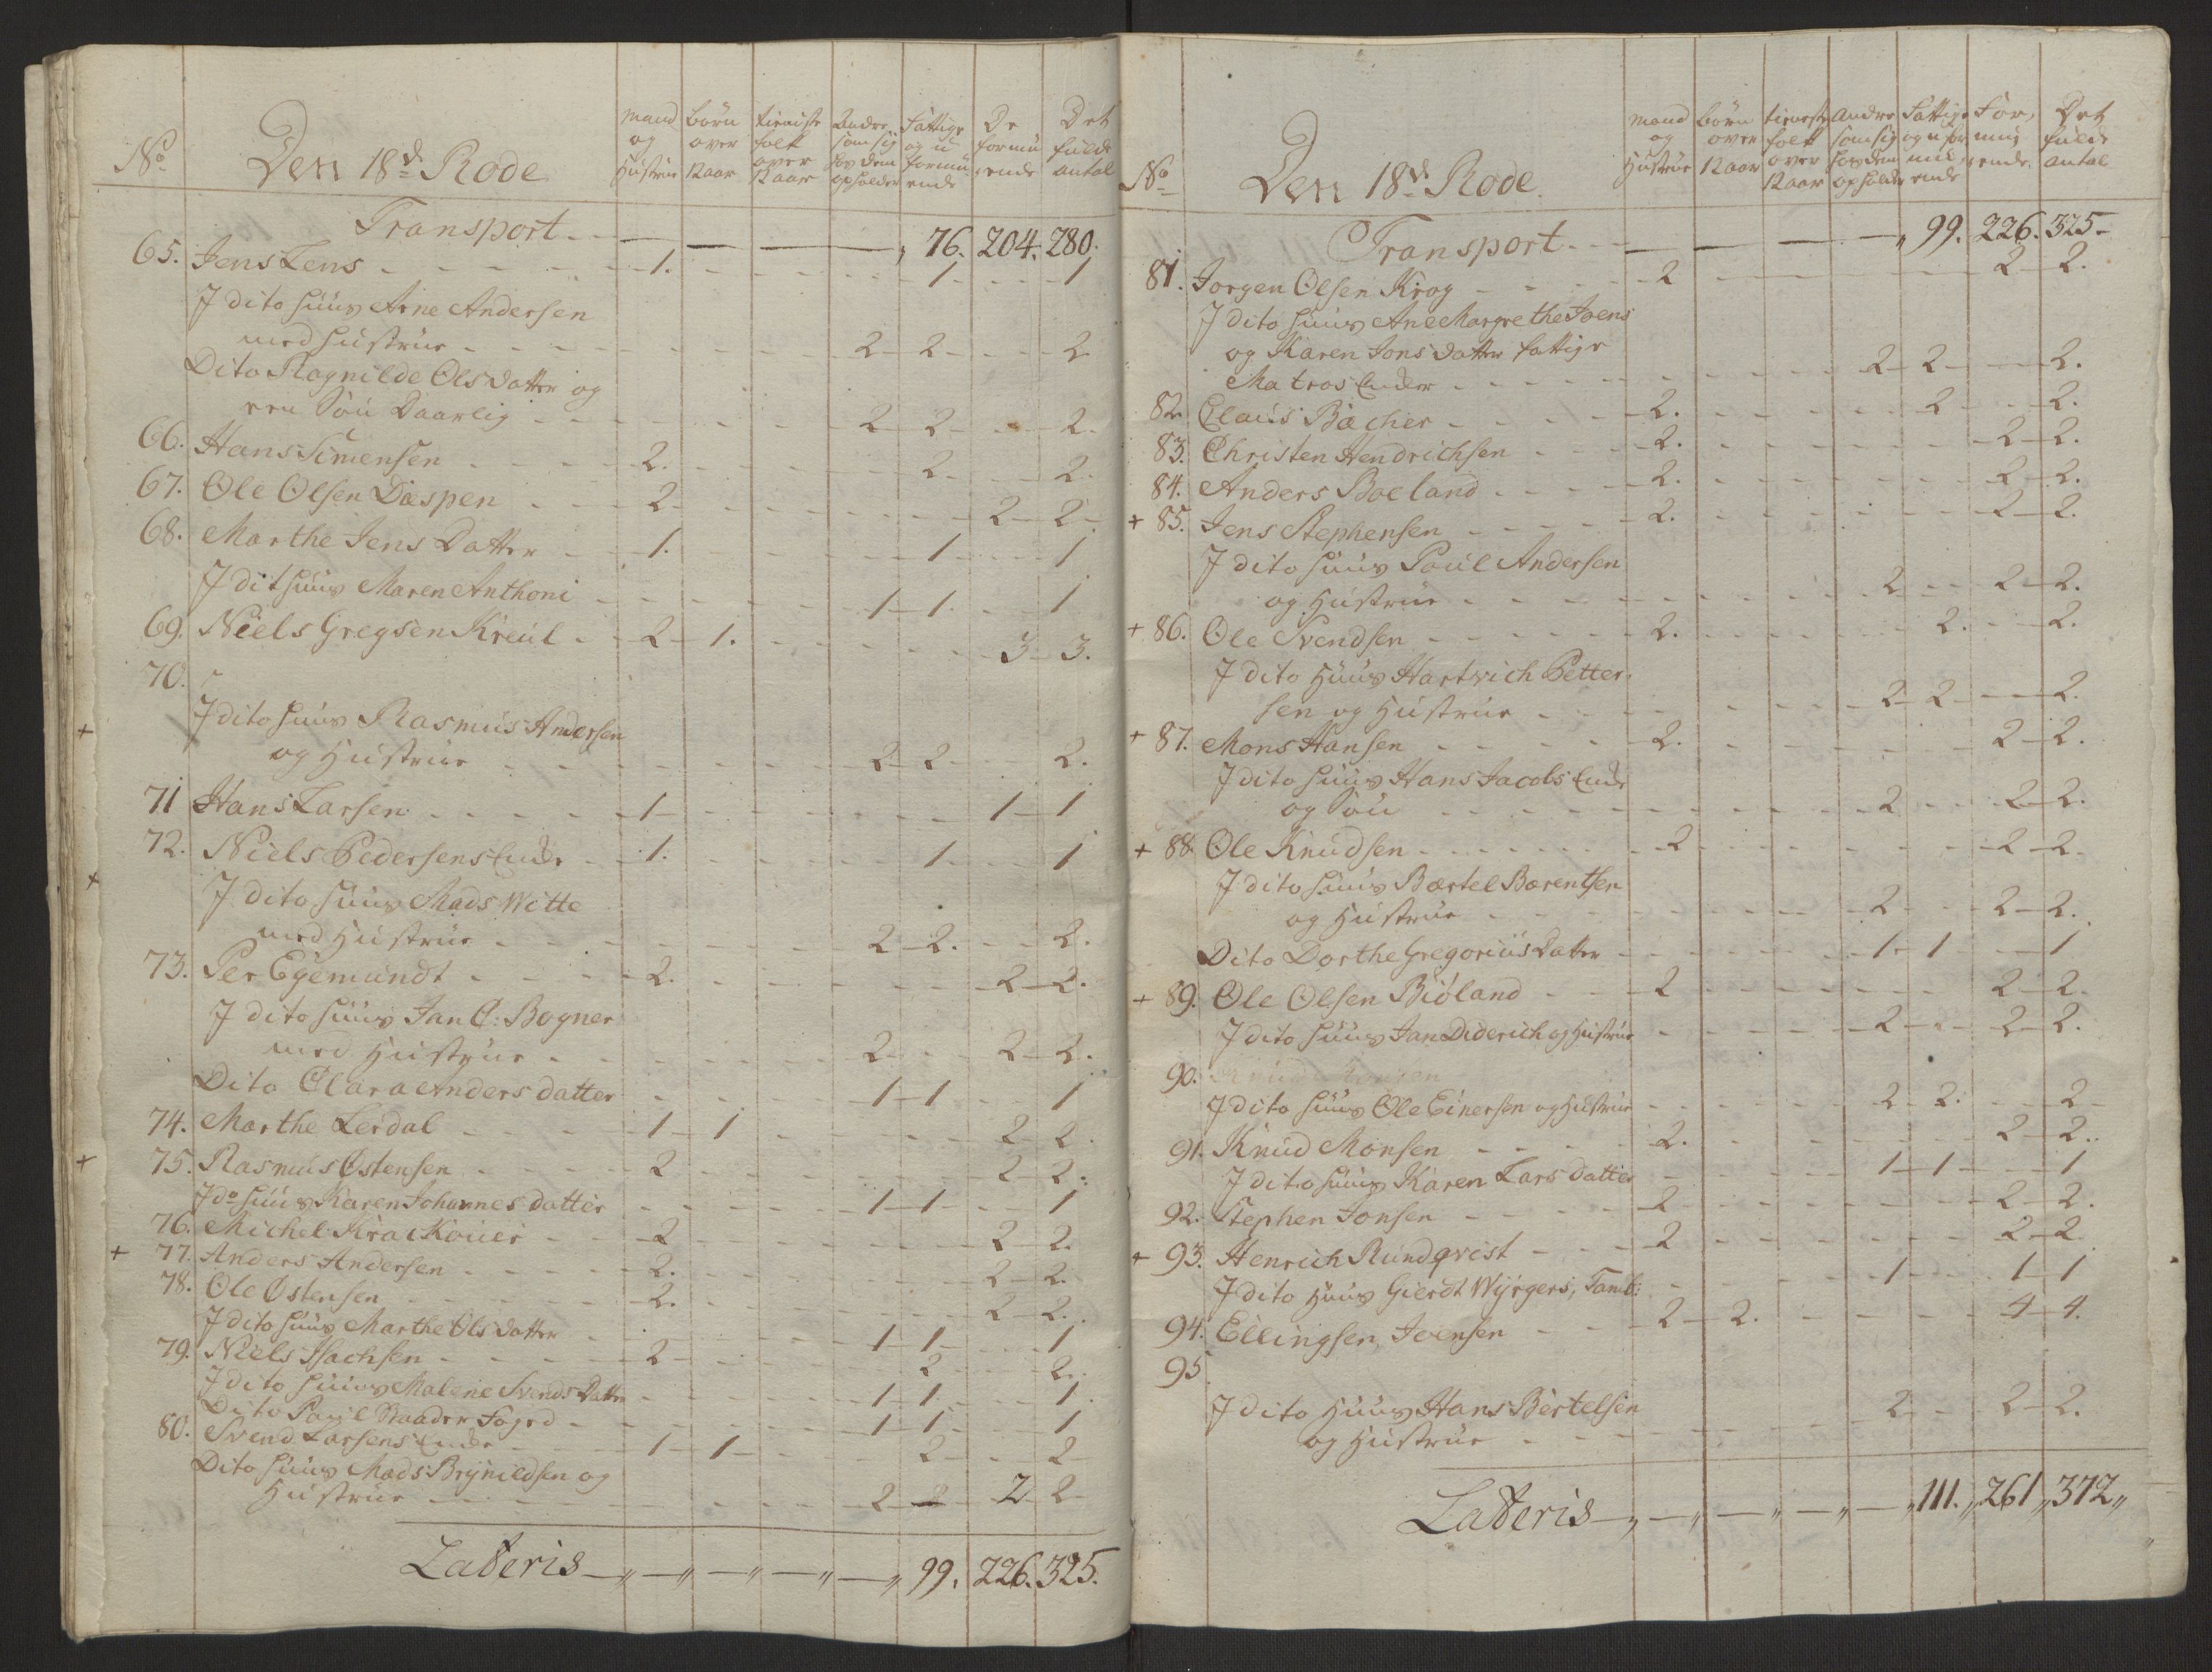 No Den 18d Rode mand og Hustrue börn over 12 aar tieniste folk over 12 aar Andre som sig hos dem opholder Fattige og u formü ende De formü ende Det fulde antal
Transport - - - - 76. 204. 280.
65. Jens Lens - 1. - 1 - 1
J dito Huus Arne Andersen
med Hustrue - 2 - 2 - 2
Dito Ragnilde Olsdatter og
een Sön Daarlig - 2 - 2 - 2.
66. Hans Simensen - 2. - 2. - 2.
67. Ole Olsen Daspen - 2 - 2 - 2.
68. Marthe Jens Datter - 1. - 1 - 1
J dit Huus Maren Anthoni - 1 - 1. - 1
69. Niels Gregsen Kreül - 2 - 1. - 3 - 3.
70.
+ J dito Huus Rasmus Andersen
og Hustrue - 2 - 2 - 2.
71 Hans Larsen - 1 - 1 - 1
72. Niels Pedersens Encke - 1. - 1 - 1
+ J dito Huus Mads Witte
med Hustrue - 2 - 2. - 2.
73. Per Egemundt - 2. - 2 - 2.
J dito Huus Jan C: Bogner
med Hustrue - 2 - 2 - 2.
Dito Clara Anders datter - 1 - 1 - 1
74. Marthe Lerdal - 1 - 1 - 2 - 2.
+ 75. Rasmus Östensen - 2 - 2 - 2.
J do Huus Karen Johannes datter - 1 - 1 - 1
76. Michel Kra - 2 - 2 - 2.
+ 77. Anders Andersen - 2. - 2 - 2.
78. Ole Östensen - 2. - 2 - 2.
J dito Huus Marthe Ols datter - 1 - 1 - 1
79. Niels Isachsen - 2 - 2 - 2.
J dito Huus Malene Svends Datter - 1 - 1. - 1.
Dito Paül Foged - 1 - 1 - 1
80. Svend Larsens Encke - 1 - 1 - 2 - 2
Dito Huus Mads Brynildsen og
Hustrue - 2 - 2 - 2
Lateris - - - - 99. 226. 325.
No Den 18d Rode. mand og Hustrue börn over 12 aar tieneste folk over 12 aar Andre som sig hos dem opholder Fattige og u for mü ende For, mü ende. Det fulde antal
Transport - - - - 99. 226. 325
81. Jorgen Olsen Krog - 2 - 2 - 2.
J dito Huus Ane Margrethe Joens
og Karen Jons datter fattige
Matros Encker - 2 - 2 - 2.
82. Claus Bacher - 2. - 2 - 2.
83. Christen Hendrichsen - 2. - 2 - 2.
84. Anders Boeland - 2. - 2 - 2.
+ 85. Jens Stephensen - 2. - 2 - 2.
J dito Huus Paul Andersen
og Hustrue - 2 - 2 - 2.
+ 86. Ole Svendsen - 2. - 2. - 2.
J dito Huus Hartvich Petter
sen og Hustrue - 2 - 2 - 2.
+ 87. Mons Hansen - 2. - 2 - 2.
J dito Huus Hans Jacobs Encke
og Sön - 2 - 2 - 2.
+ 88. Ole Knudsen - 2 - 2 - 2.
J dito Huus Bærtel Bærentsen
og Hustrue - 2 - 2 - 2.
Dito Dorthe Gregorius Datter - 1 - 1 - 1
+ 89. Ole Olsen Biöland - 2 - 2 - 2.
J dito Huus Jan Diderich og Hustrue - 2 - 2 - 2.
90.
J dito Huus Ole Einersen og Hustrue - 2 - 2. - 2
91. Knud Monsen - 2. - 2 - 2.
J dito Huus Karen Lars datter - 1 - 1 - 1
92. Stephen Jonsen - 2 - 2 - 2.
+ 93. Henrich Rundqvist - 2 - 2 - 2
J dito Huus Gierdt Wyrgers, Tamb: - 1 - 1 - 1
94. Ellingsen, Joensen - 2 - 2. - 4 - 4.
95
J dito Huus Hans Bertelsen
og Hustrue - 2 - 2 - 2.
Lateris - - - - 111. 261 372